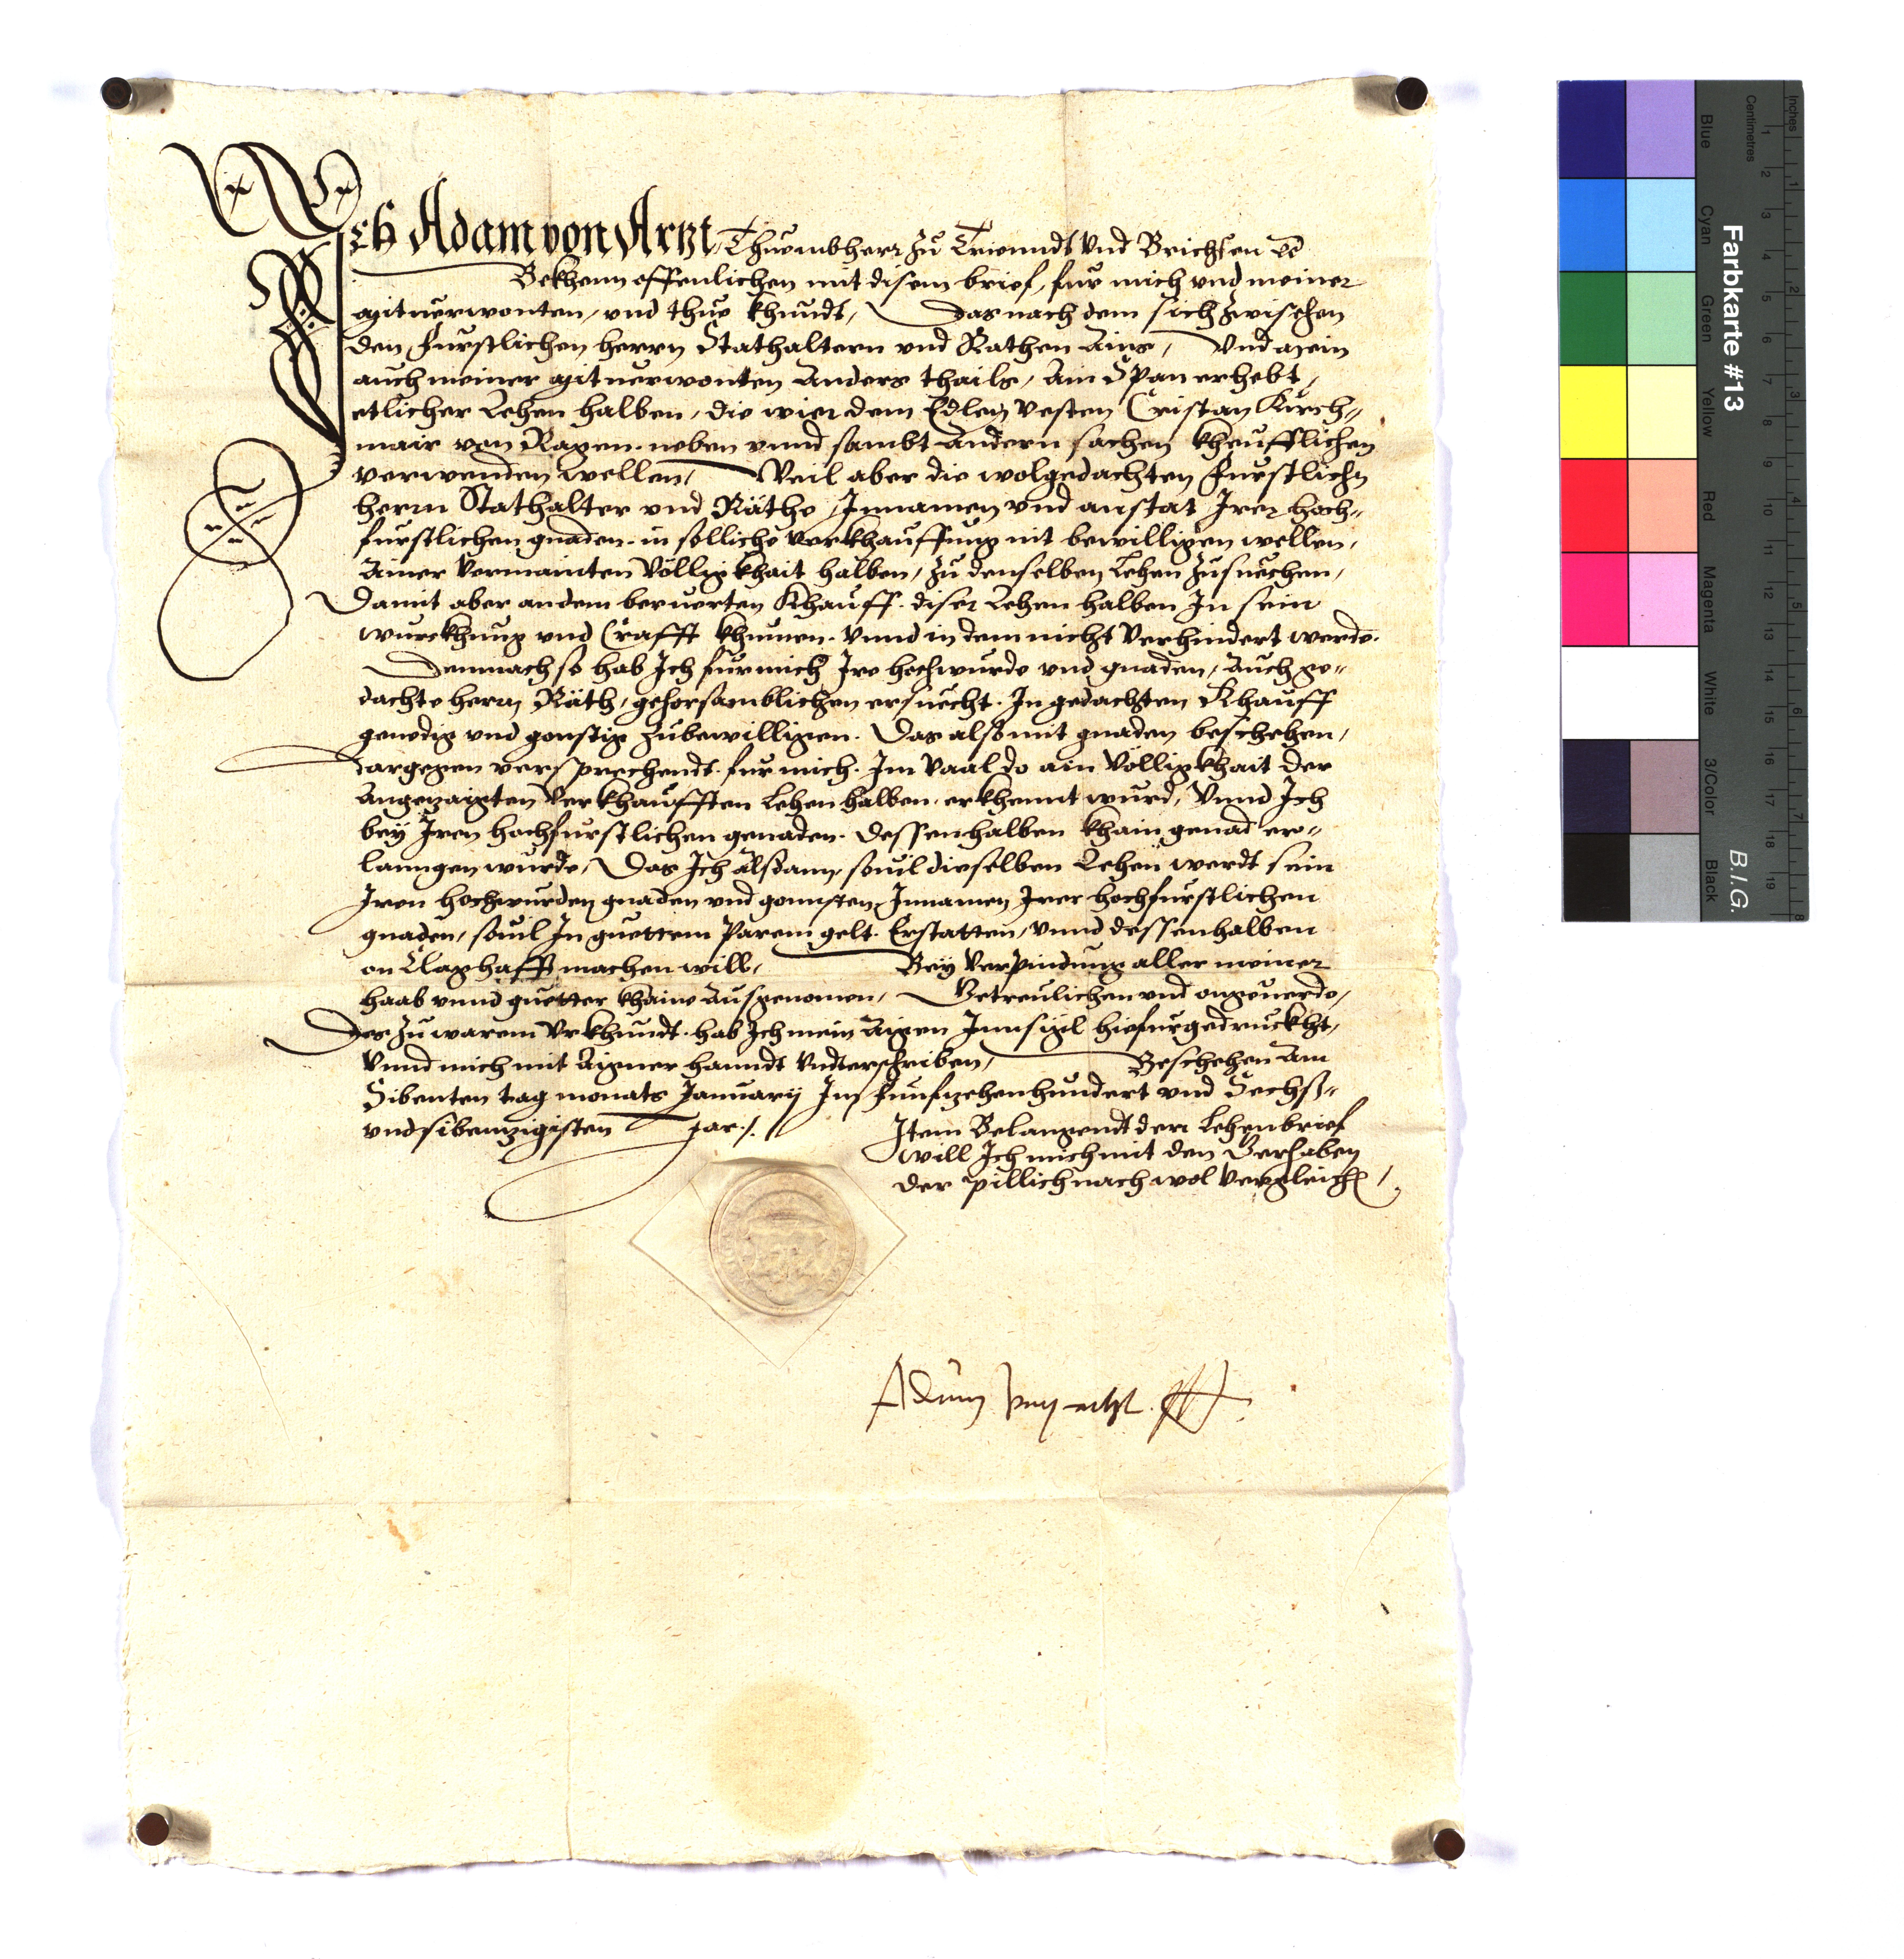 Ich Adam von Artzt, Thuembherr zu Triendt vnd Brichsen ec
Bekhenn offenlichen mit disem brief, fur mich vnd meiner
mituerwonten, vnd thue khundt, Das nach dem sich zwischen
den furstlichen herrn Stathaltern vnd Rathen Ains, Vnd mein
auch meiner mituerwonten Anders thails, Ain Span erhebt,
etlicher Lehen halben, die wier dem Edlen Vesten Cristan Kirch-
mair von Ragen. neben vnnd sambt andern sachen kheufflichen
verwenden wellen, Weil aber die wolgedachten furstlichn
herrn Stathalter vnd Räthe, Innamen vnd anstat Irer hoch-
furstlichen gnaden. in solliche verkhauffung nit bewilligen wellen,
Ainer Vermainten Völligkhait halben, zu denselben Lehen zusuechen,
Damit aber andem beruerten Khauff. diser Lehen halben In sein
wurckhung vnd Crafft khumen. vnnd in dem nicht Verhindert werde.
Demnach so hab Ich fur mich Ire hochwurde vnd gnaden, Auch ge-
dachte herrn Räth, gehorsamblichen ersuecht. In gedachten Khauff
genedig vnd gonstig zubewilligen. Das alß mit gnaden beschehen,
dargegen versprechendt. fur mich. Im Vaal do ain Völligkhait der
Angezaigten Verkhaufften Lehen halben. erkhennt wurd, Vnnd Ich
bey Iren hochfurstlichen genaden. dessenhalben khain genad er-
lanngen wurde, Das Ich alßdann, souil dieselben Lehen werdt sein
Iren hochwurden gnaden vnd gonnsten, Innamen Irer hochfurstlichen
gnaden, souil In guettem Parem gelt. Erstatten, vnnd dessenhalben
on Claghafft machen will, Bey Verpindung aller meiner
haab vnnd guetter khaine Ausgenomen, Getreulichen vnd ongeuerde,
Des zu warem Vrkhundt. hab Ich mein Aigen Innsigl hiefurgedruckht,
Vnnd mich mit Aigner hanndt Vnderschriben, Beschehen Am
Sibenten tag monats January Im funfzehenhundert vnd Sechß-
vndsibenzigisten Jar./.
Item Belangendt den Lehenbrief
will Ich mich mit den Gerhaben
der pillich nach wol Vergleichen,
Adam von artzt
Farbkarte #13
B.I.G.
Inches
Centimetres
Blue
Cyan
Green
Yellow
Red
Magenta
White
3/Color
Black
1 2 3 4 5 6 7 8 9 10 11 12 13 14 15 16 17 18 19
1 2 3 4 5 6 7 8